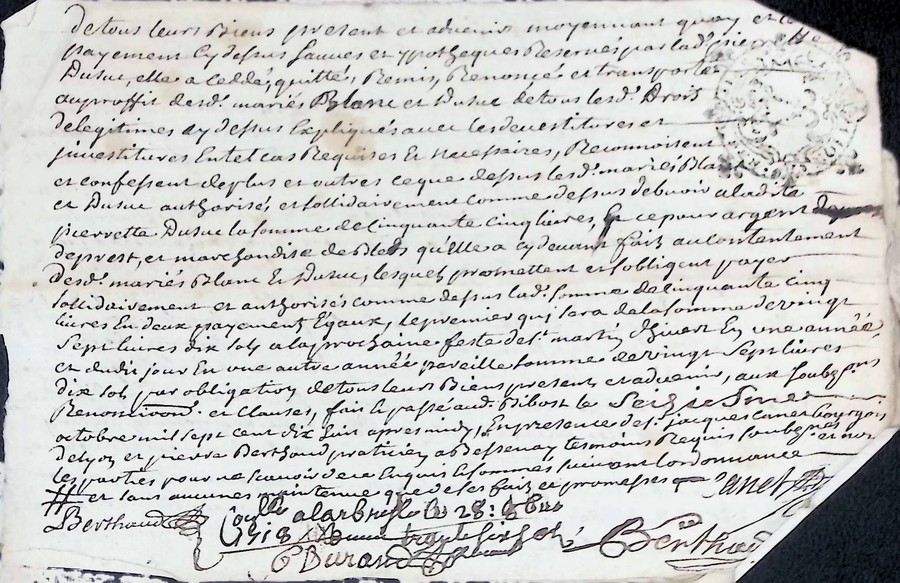 de tous leurs Biens present et advenir moyennant quoy et le
payement Cy dessus sauves et ypotheques Reservé par lad. pierrette
Dusuc, elle a Ceddé, quitté, Remis, Renoncé et transporté
au proffit desd. mariés Blanc et Dusuc de tous lesd. Drois
de legitimes cy dessus Expliqués avec les devestitures et
jnvestitures En tel cas Requises Et necessaires, Reconnoissent
et confessent de plus et outres ce que dessus lesd. mariés Blanc
et Dusuc authorisés et sollidairement comme dessus debvoir a ladite
pierrette Dusuc la somme de Cinquante Cinq livres, Et ce pour argent
de prest, et marchandise de Bleds qu'Elle a cy devant fait au Contentement
desd. mariés Blanc Et Dusuc, lesquels promettent et s'obligent payer
sollidairement et authorisés comme dessus lad. somme de Cinquante Cinq
livres En deux payements Egaux, le premier qui sera de la somme de vingt
Sept livres dix sols a la prochaine feste de st. martin d'hivert En une année
et dudit jour En une autre année pareille somme de vingt Sept livres
dix sols par obligation de tous leurs Biens present et advenir, aux soubz pnes
Renonciaons. et Clauses, fait et passé aud. Bibost le Seiziesme
octobre mil sept Cent dix huit apres midy, En presence de sr. jacques Canet bourgois
de Lyon et pierre Berthaud praticien a Bessenay, tesmoins Requis soubsignes et non
les parties pour ne scavoir de ce Enquis et sommés suivant l'ordonnance
# et sans aucunes maintenue que de ses faits et promesses Canet
Berthaud Conllé a Larbresle le 28: 8bre
1718 Reçu treize sols
Durand Berthaud